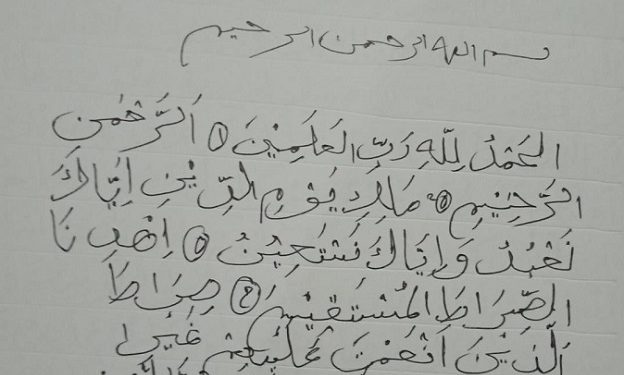 بسم الله الرحمن الرحيم
الحَمْدُ لِلّهِ رَبِّ العَلَمِيْنَ ١ اَلرَّحْمٰنِ
الرَّحِيْمِ ٥ مَلِكِ يَوْمِ الدِّيْنِ اِيَّاكَ
نَعْبُدُ وَاِيَّاكَ نَسْتَعِيْنُ ٥ اِهْدِ نَا
الصِّرَاطَ المُسْتَقِيْمَ صِرَاطَ
الَّذِيْنَ اَنْعَمْتَ عَلَيْهِمْ غَيْرِ